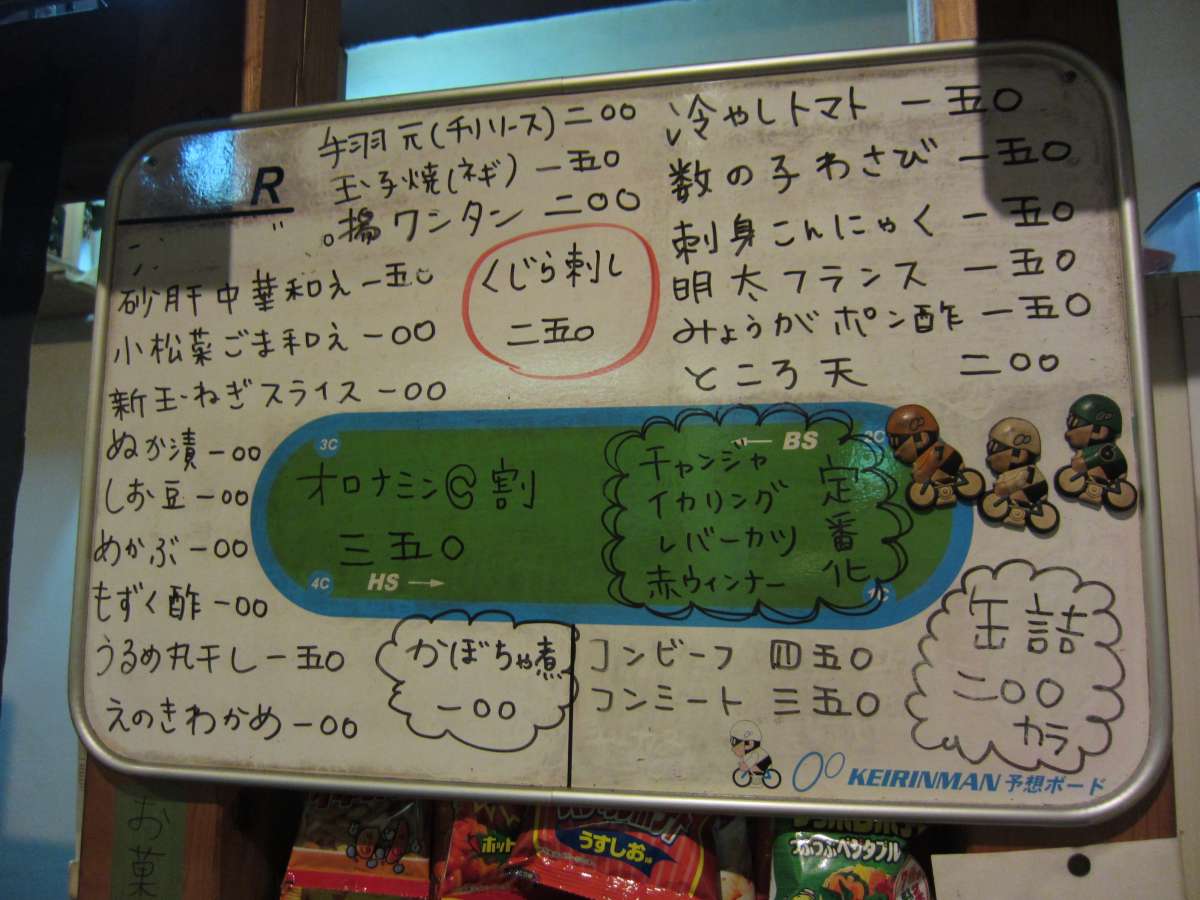 R
手羽元(チリソース)二〇〇
玉子焼(ネギ)一五〇
揚ワンタン 二〇〇
砂肝中華和え一五〇
小松菜ごま和え一〇〇
新玉ねぎスライス一〇〇
ぬか漬一〇〇
しお豆一〇〇
めかぶ一〇〇
もずく酢一〇〇
うるめ丸干し一五〇
えのきわかめ一〇〇
くじら刺し
二五〇
冷やしトマト 一五〇
数の子わさび 一五〇
刺身こんにゃく 一五〇
明太フランス 一五〇
みょうがポン酢 一五〇
ところ天 二〇〇
3C
BS
2C
オロナミンC割
三五〇
4C
HS
チャンジャ
イカリング
レバーカツ
赤ウィンナー
定番化
かぼちゃ煮
一〇〇
コンビーフ 四五〇
コンミート 三五〇
缶詰
二〇〇
カラ
KEIRINMAN 予想ボード
お菓
ホット
うすしお味
つぶつぶベジタブル